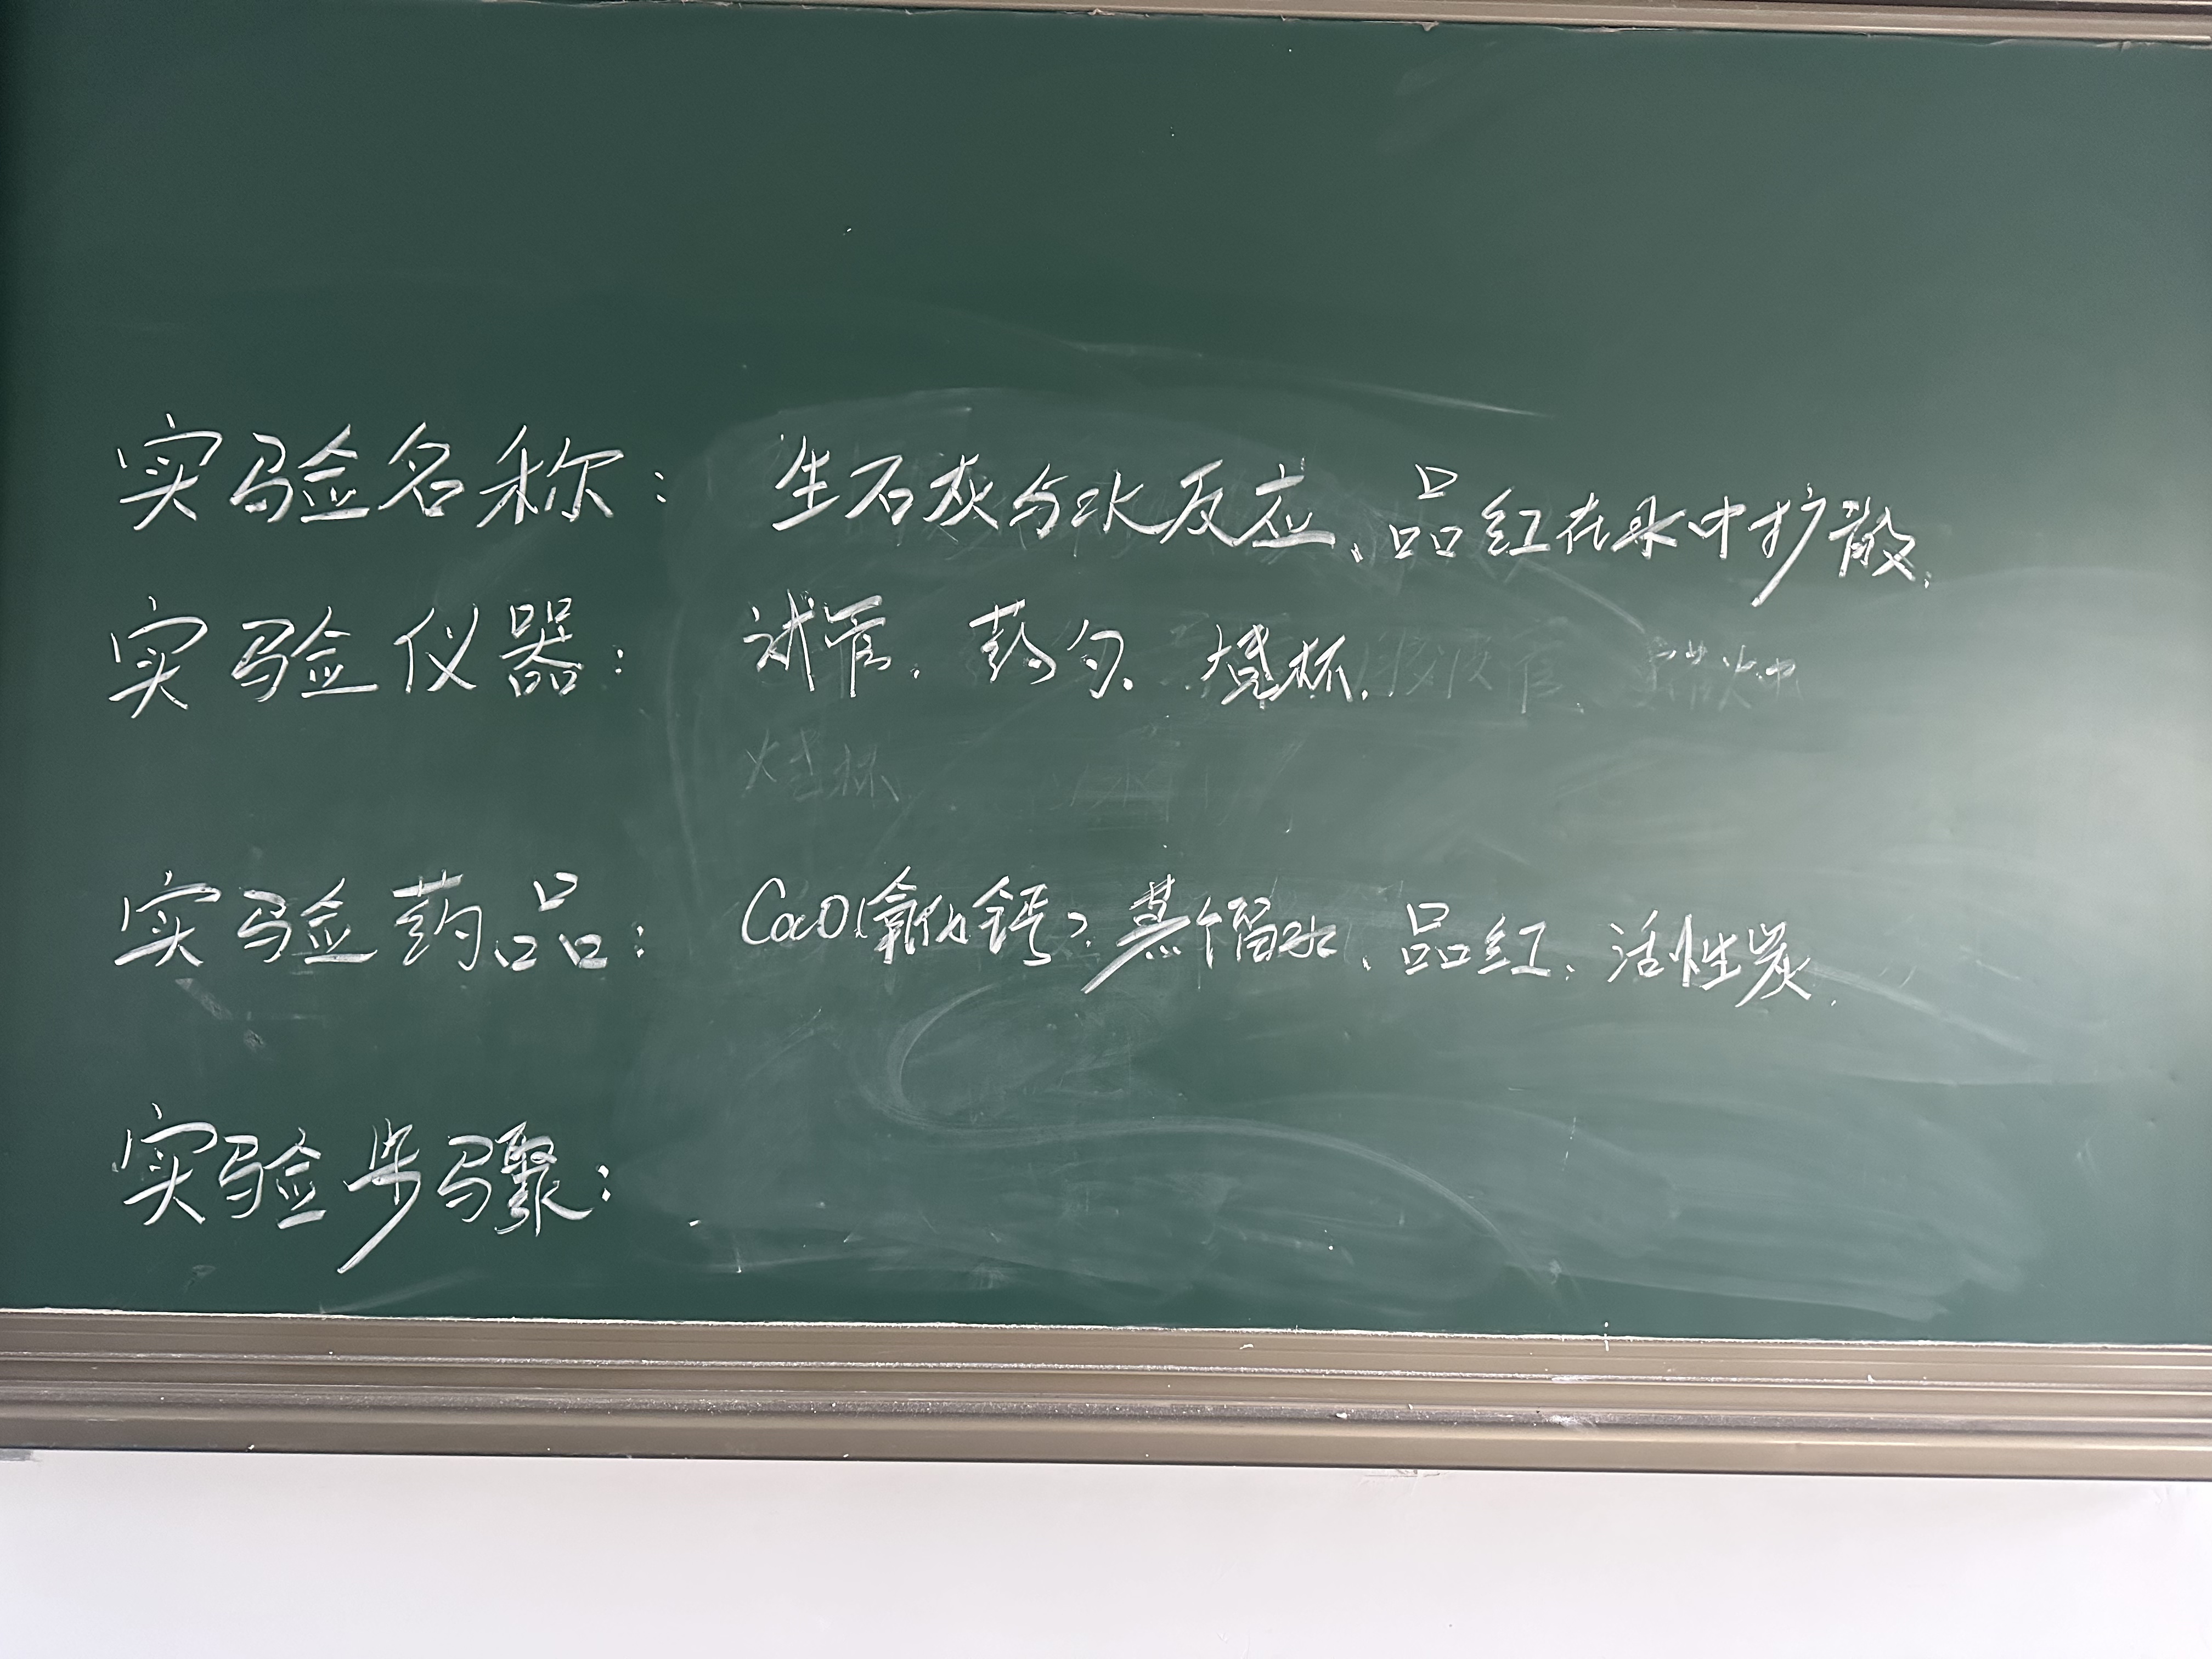 实验名称: 生石灰与水反应、品红在水中扩散.
实验仪器: 试管、药勺、烧杯.
烧杯
实验药品: CaO(氧化钙)、蒸馏水、品红、活性炭.
实验步骤: